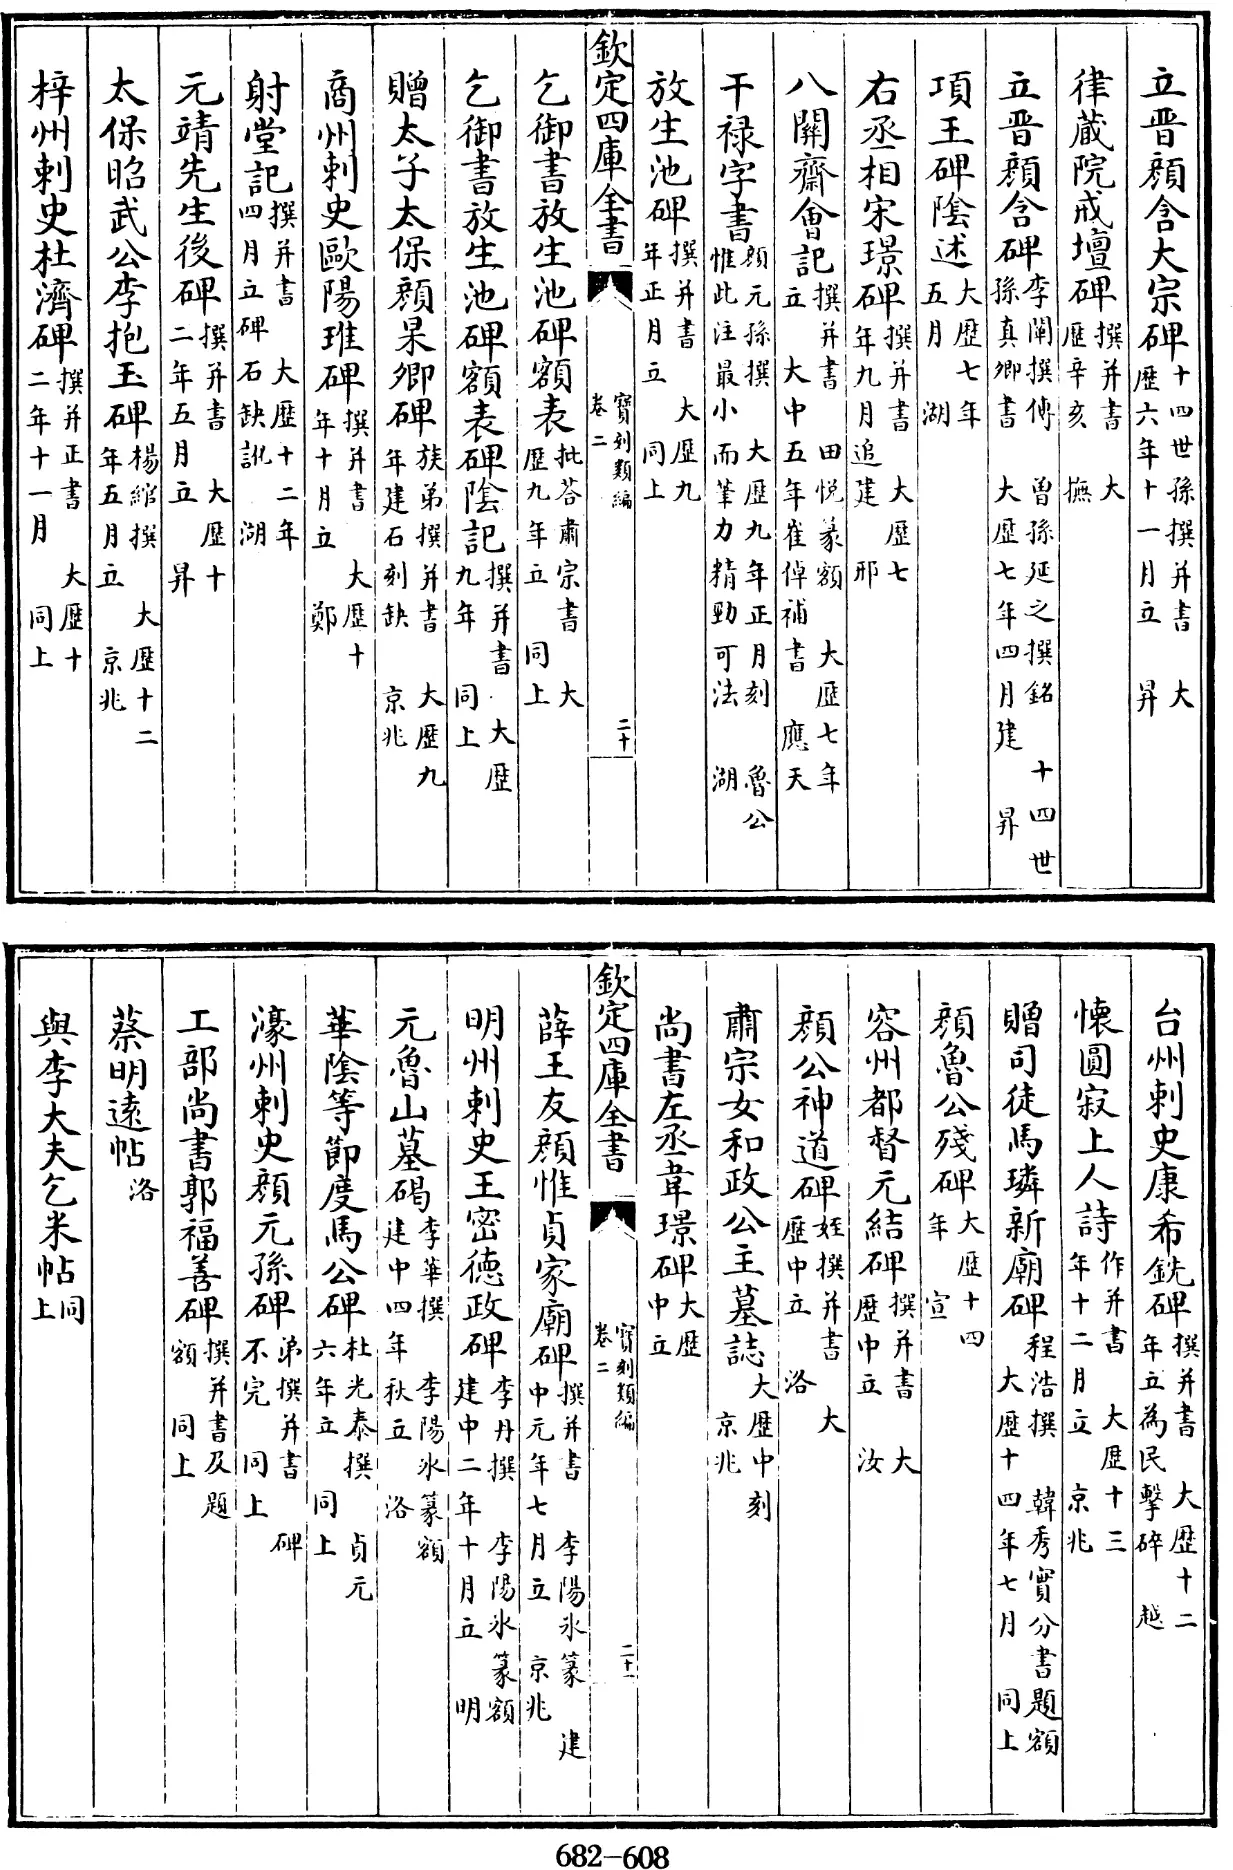 立晋顔含大宗碑十四世孫撰并書 大歴六年十一月立 昇
律蔵院戒壇碑撰并書 大歴辛亥 撫
立晋顔含碑李闡撰傳 曽孫延之撰銘 十四世孫真卿書 大歴七年四月建 昇
項王碑陰述大歴七年五月 湖
右丞相宋璟碑撰并書 大歴七年九月追建 邢
八關齋會記撰并書 田悦篆額 大歴七年立 大中五年崔倬補書 應天
干禄字書顔元孫撰 大歴九年正月刻 魯公惟此注最小而筆力精勁可法 湖
放生池碑撰并書 大歴九年正月立 同上
欽定四庫全書 寳刻類編 卷二 二十
乞御書放生池碑額表批荅肅宗書 大歴九年立 同上
乞御書放生池碑額表碑陰記撰并書 大歴九年 同上
贈太子太保顔杲卿碑族弟撰并書 大歴九年建石刻缺 京兆
商州刺史歐陽琟碑撰并書 大歴十年十月立 鄭
射堂記撰并書 大歴十二年四月立碑石缺訛 湖
元靖先生後碑撰并書 大歴十二年五月立 昇
太保昭武公李抱玉碑楊綰撰 大歴十二年五月立 京兆
梓州刺史杜濟碑撰并正書 大歴十二年十一月 同上
台州刺史康希銑碑撰并書 大歴十二年立為民擊碎 越
懐圓寂上人詩作并書 大歴十三年十二月立 京兆
贈司徒馬璘新廟碑程浩撰 韓秀實分書題額 大歴十四年七月 同上
顔魯公殘碑大歴十四年 宣
容州都督元結碑撰并書 大歴中立 汝
顔公神道碑姪撰并書 大歴中立 洛
肅宗女和政公主墓誌大歴中刻 京兆
尚書左丞韋璟碑大歴中立
欽定四庫全書 寳刻類編 卷二 二十一
薛王友顔惟貞家廟碑撰并書 李陽氷篆 建中元年七月立 京兆
明州刺史王密德政碑李丹撰 李陽氷篆額 建中二年十月立 明
元魯山墓碣李華撰 李陽氷篆額 建中四年秋立 洛
華陰等節度馬公碑杜光泰撰 貞元六年立 同上
濠州刺史顔元孫碑弟撰并書 碑不完 同上
工部尚書郭福善碑撰并書及題額 同上
蔡明逺帖洛
與李大夫乞米帖同上
682-608